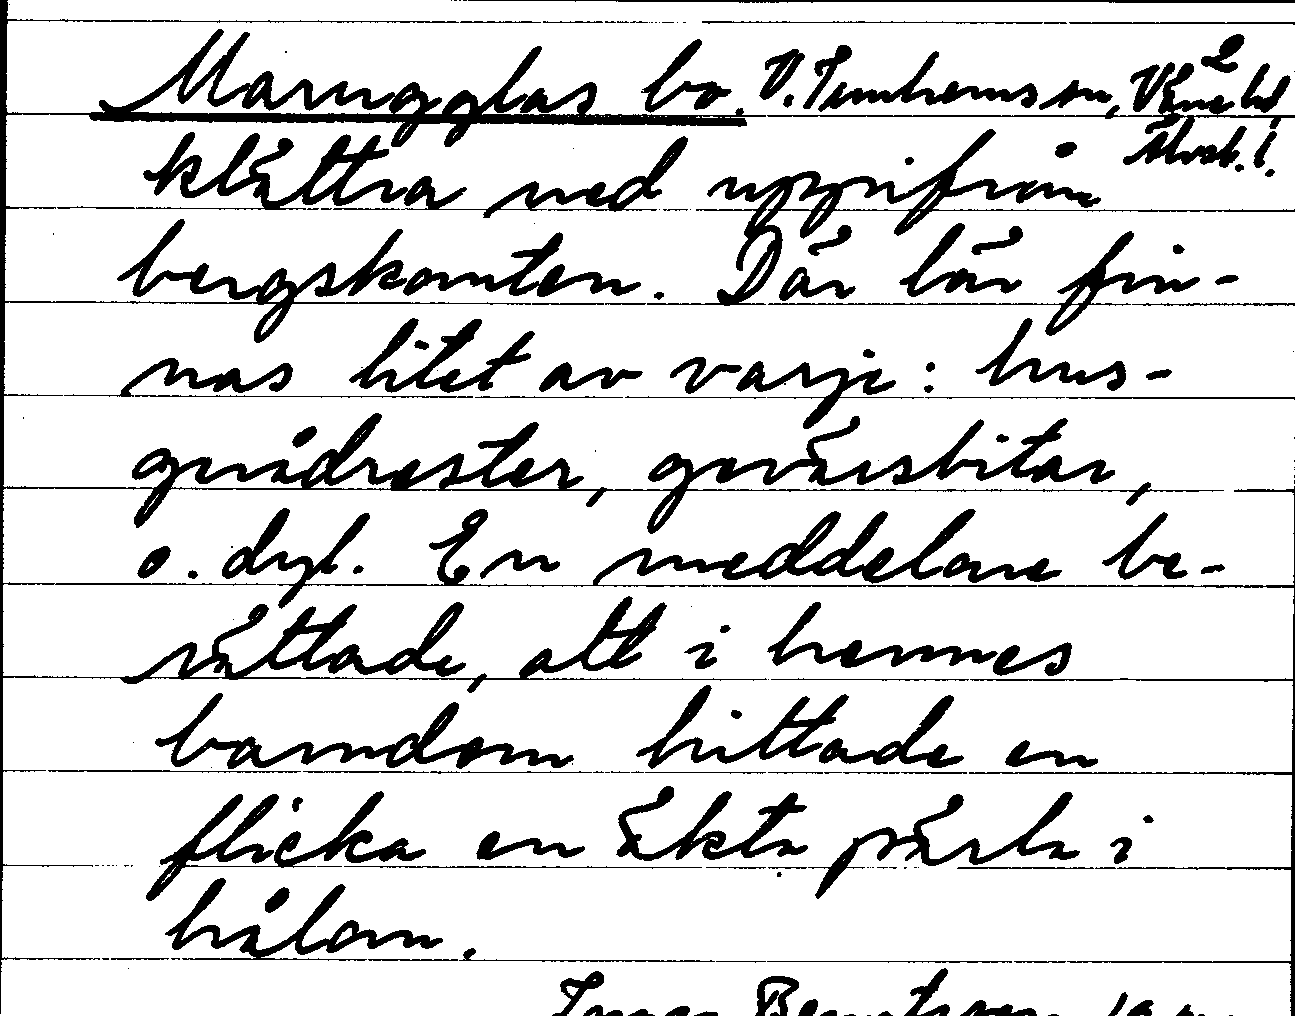 Marugglas bo. V. Tunhems sn, Väne hd, 2
Älvsb. l.
klättra ned uppifrån
bergskanten. Där lär fin-
nas litet av varje: hus-
gerådrester, gevärsbitar,
o. dyl. En meddelare be-
rättade, att i hennes
barndom hittade en
flicka en äkta pärla i
hålan.